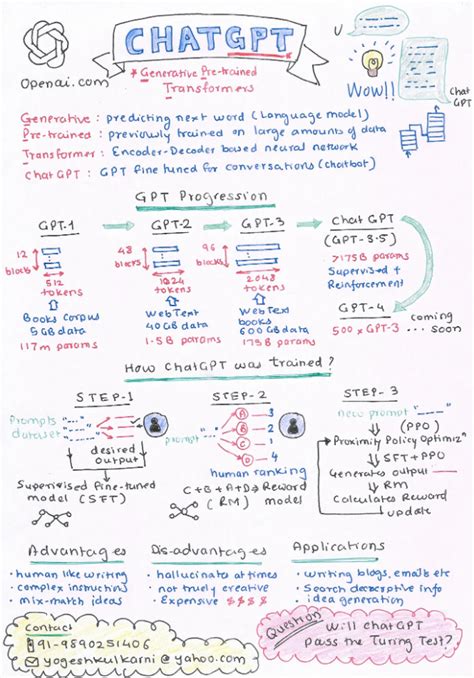 CHATGPT
Openai.com
* Generative Pre-trained
Transformers
U
Wow!!
Chat
GPT
Generative : predicting next word (Language model)
Pre-trained : previously trained on large amounts of data
Transformer : Encoder-Decoder based neural network
Chat GPT : GPT fine tuned for conversations (chatbot)
GPT Progression
GPT-1
12
blocks
512
tokens
Books Corpus
5 GB data
117m params
GPT-2
48
blocks
1024
tokens
WebText
40 GB data
1.5 B params
GPT-3
96
blocks
2048
tokens
WebText
books
600 GB data
175B params
Chat GPT
(GPT-3.5)
>175B params
Supervised +
Reinforcement
GPT-4
500 x GPT-3
coming
... soon
How ChatGPT was trained?
STEP-1
Prompts
dataset
desired
output
Supervised fine-tuned
model (SFT)
STEP-2
prompt
A 3
B 2
C 1
D 4
human ranking
C > B > A > D → Reward
(RM) model
STEP-3
new prompt
(PPO)
Proximity Policy Optimizn
SFT + PPO
Generates output
RM
Calculates Reward
update
Advantages
• human like writing
• complex instructns
• mix-match ideas
Dis-advantages
• hallucinate at times
• not truely creative
• Expensive $ $ $ $
Applications
• writing blogs, emails etc
• Search descriptive info
• idea generation
Contact
91-9890251406
yogeshkulkarni@yahoo.com
Question
Will ChatGPT
pass the Turing Test?